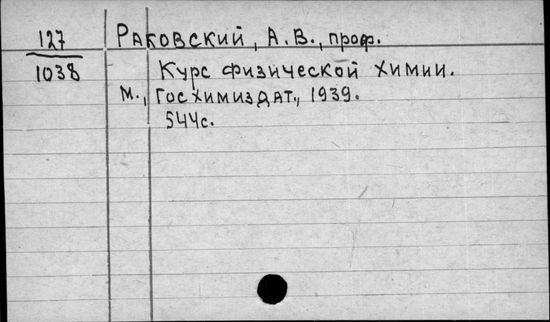 127
1038
Раковский, А.В., проф.
Курс физической химии.
М., Госхимиздат., 1939.
544с.